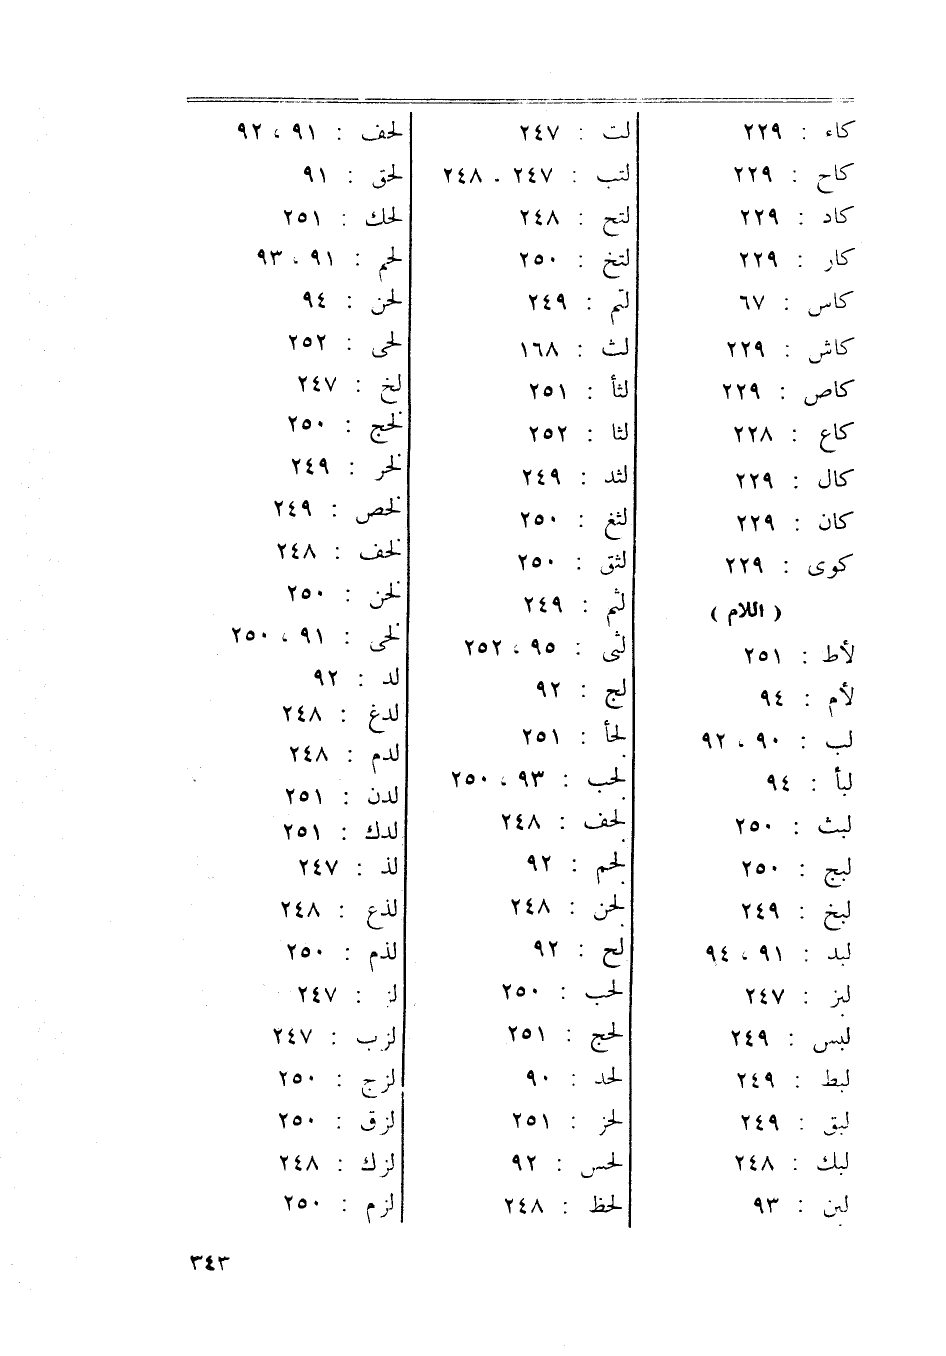 كاء : ٢٢٩
كاح : ٢٢٩
كاد : ٢٢٩
كار : ٢٢٩
كاس : ٦٧
كاش : ٢٢٩
كاص : ٢٢٩
كاع : ٢٢٨
كال : ٢٢٩
كان : ٢٢٩
كوى : ٢٢٩
( اللام )
لأط : ٢٥١
لأم : ٩٤
لب : ٩٠ ، ٩٢
لبأ : ٩٤
لبث : ٢٥٠
لبج : ٢٥٠
لبخ : ٢٤٩
لبد : ٩١ ، ٩٤
لبز : ٢٤٧
لبس : ٢٤٩
لبط : ٢٤٩
لبق : ٢٤٩
لبك : ٢٤٨
لبن : ٩٣
لت : ٢٤٧
لتب : ٢٤٧ - ٢٤٨
لتح : ٢٤٨
لتخ : ٢٥٠
لتم : ٢٤٩
لث : ١٦٨
لثأ : ٢٥١
لثا : ٢٥٢
لثد : ٢٤٩
لثغ : ٢٥٠
لثق : ٢٥٠
لثم : ٢٤٩
لثى : ٩٥ ، ٢٥٢
لج : ٩٢
لجأ : ٢٥١
لجب : ٩٣ ، ٢٥٠
لجف : ٢٤٨
لجم : ٩٢
لجن : ٢٤٨
لح : ٩٢
لحب : ٢٥٠
لحج : ٢٥١
لحد : ٩٠
لحز : ٢٥١
لحس : ٩٢
لحظ : ٢٤٨
لحف : ٩١ ، ٩٢
لحق : ٩١
لحك : ٢٥١
لحم : ٩١ ، ٩٣
لحن : ٩٤
لحى : ٢٥٢
لخ : ٢٤٧
لخج : ٢٥٠
لخر : ٢٤٩
لخص : ٢٤٩
لخف : ٢٤٨
لخن : ٢٥٠
لخى : ٩١ ، ٢٥٠
لد : ٩٢
لدغ : ٢٤٨
لدم : ٢٤٨
لدن : ٢٥١
لدك : ٢٥١
لذ : ٢٤٧
لذع : ٢٤٨
لذم : ٢٥٠
لز : ٢٤٧
لزب : ٢٤٧
لزج : ٢٥٠
لزق : ٢٥٠
لزك : ٢٤٨
لزم : ٢٥٠
٣٤٣